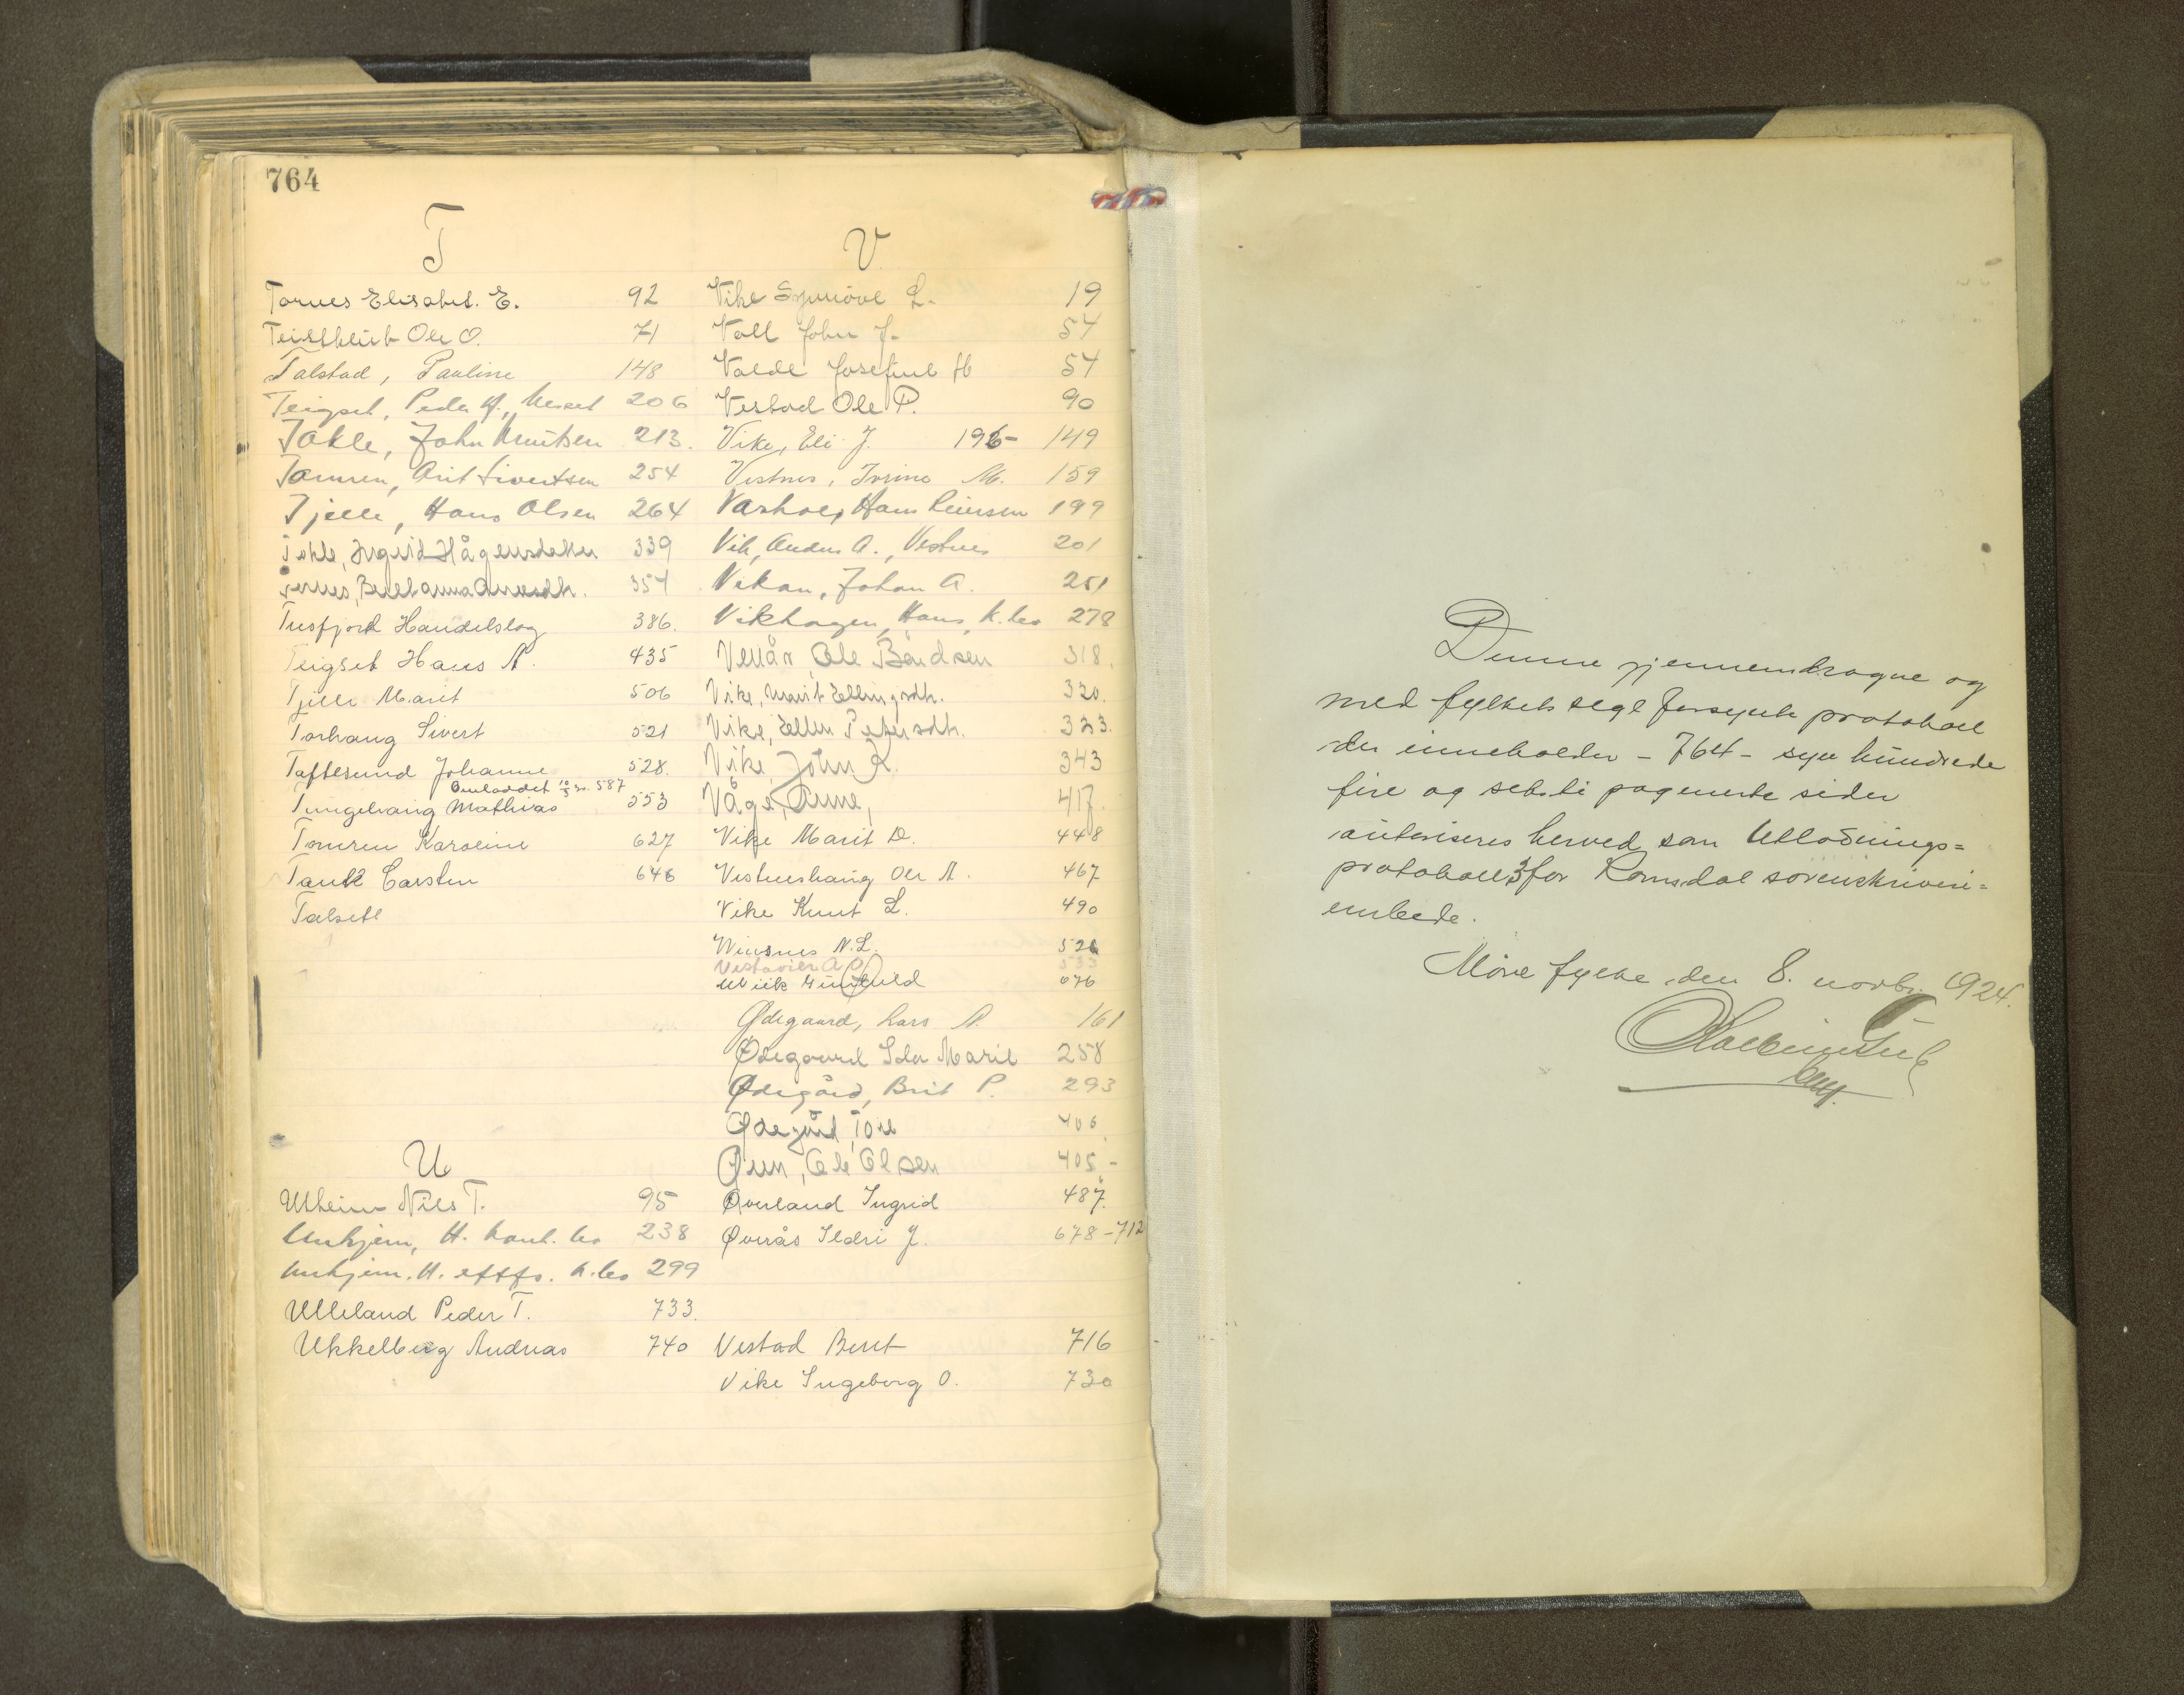 764
T
Tornes Elisabet. E. 92
Ole O. 71
Talstad, Pauline 148
Teigset, Peder A., 206
Tokle, John Knutsen 213.
Tomren, Arit Sivertsen 254
Tjelle, Hans Olsen 264
Tokle, Ingrid Hågensdatter 339
354
Tresfjord Handelslag 386.
Teigset Hans A. 435
Tjelle Marit 506
Torhaug Sivert 521
Taftesund Johanne 528.
587
Tungehaug Mathias 553
Tomren Karoline 627
Tank Carsten 646
Talsett
U
Ulheim Nils T. 95
Unhjem, H. konk. bo 238
Unhjem. H. eftf. k. bo 299
Ulleland Peder T. 733.
Ukkelberg Andreas 740
V
Vike Synnöve L. 19
Voll John J. 54
Volde Josefine H 54
Vestad Ole P. 90
Vike, Eli J. 196- 149
Vestnes, M. 159
Hans 199
Vik, Anders A., Vestnes 201
Vikan, Johan A. 251
Vikhagen, Hans, k. bo 278
Ole Bårdsen 318.
Vike, Marit Ellingsdtr. 320.
Vike, Ellen Petersdtr. 323.
Vike, John K. 343
Våge, Anne, 417.
Vike Marit D. 448
Vestneshaug Ole A. 467
Vike Knut L. 490
Winsnes N.L. 526
533
Wiik Gunhild 676
Ødegaard, Lars A. 161
Ødegaard Ida Marie 258
Ødegård, Brit P. 293
Ødegård, Tore 406
Øien, Ole Olsen 405-
Øverland Ingrid 487
Øverås Ildri J. 678-712
Vestad Beret 716
Vike Ingeborg O. 730
Denne gjennemdragne og
med fylkets segl forsynte protokoll
der inneholder - 764 - syv hundrede
fire og seksti paginerte sider
autoriseres herved som Utlodnings=
protokoll 3 for Romsdal sorenskriveri=
embede.
Möre fylke, den 8. novbr. 1924.